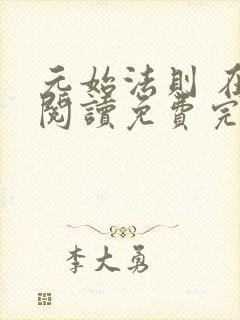 元始法則 在
閱讀免費完
李大勇